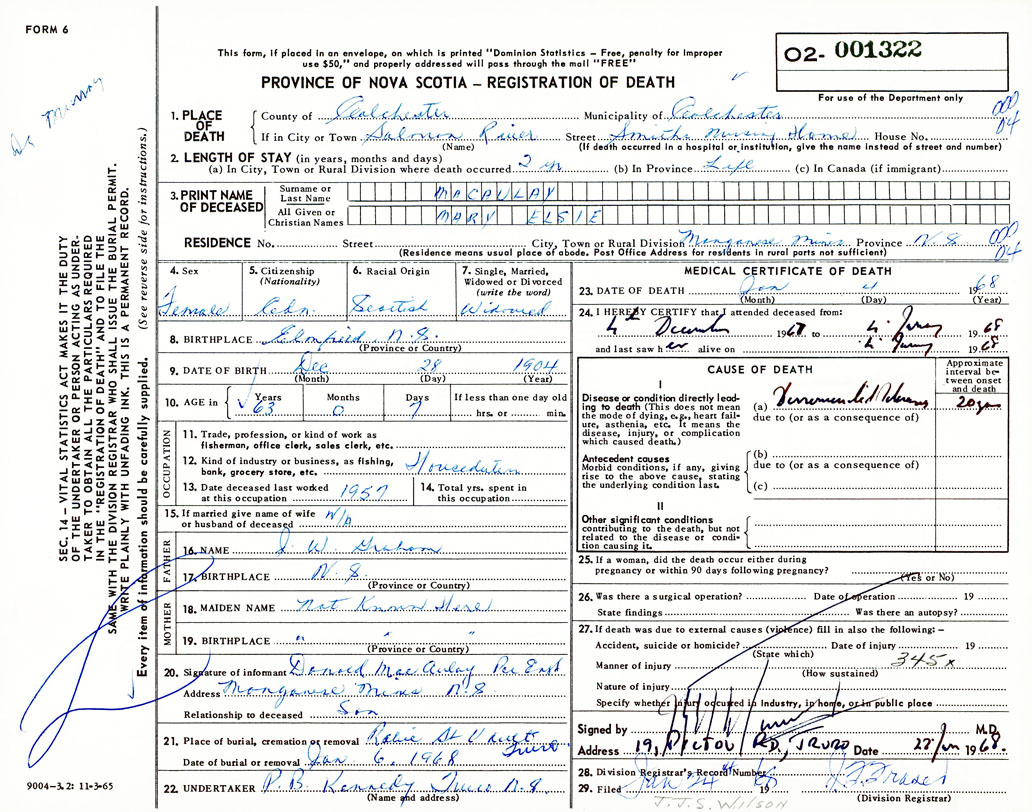 FORM 6
This form, if placed in an envelope, on which is printed "Dominion Statistics – Free, penalty for improper
use $50," and properly addressed will pass through the mail "FREE"
O2- 001322
PROVINCE OF NOVA SCOTIA – REGISTRATION OF DEATH
For use of the Department only
1. PLACE OF DEATH
County of Colchester Municipality of Colchester
If in City or Town Salmon River Street Smiths Nursing Home House No.
(Name) (If death occurred in a hospital or institution, give the name instead of street and number)
000
04
2. LENGTH OF STAY (in years, months and days)
(a) In City, Town or Rural Division where death occurred 2 yr (b) In Province Life (c) In Canada (if immigrant)
3. PRINT NAME OF DECEASED
Surname or Last Name MACAULAY
All Given or Christian Names MARY ELSIE
RESIDENCE No. Street City, Town or Rural Division Manganese Mines Province N.S
(Residence means usual place of abode. Post Office Address for residents in rural parts not sufficient)
000
04
4. Sex
Female
5. Citizenship (Nationality)
Cdn.
6. Racial Origin
Scotish
7. Single, Married, Widowed or Divorced (write the word)
Widowed
8. BIRTHPLACE N.S.
(Province or Country)
9. DATE OF BIRTH Dec 28 1904
(Month) (Day) (Year)
10. AGE in
Years 63
Months 0
Days 7
If less than one day old
hrs. or min.
OCCUPATION
11. Trade, profession, or kind of work as
fisherman, office clerk, sales clerk, etc.
12. Kind of industry or business, as fishing,
bank, grocery store, etc.
13. Date deceased last worked
at this occupation 1957
14. Total yrs. spent in
this occupation
15. If married give name of wife
or husband of deceased N/A
FATHER
16. NAME J. W. Graham
17. BIRTHPLACE N.S.
(Province or Country)
MOTHER
18. MAIDEN NAME Not Known Here
19. BIRTHPLACE " " "
(Province or Country)
20. Signature of informant Donald MacAulay Per
Address Manganese Mines N.S.
Relationship to deceased Son
21. Place of burial, cremation or removal Truro
Date of burial or removal Jan 6, 1968
22. UNDERTAKER P.B. Kennedy Truro N.S.
(Name and address)
MEDICAL CERTIFICATE OF DEATH
23. DATE OF DEATH Jan 4 1968
(Month) (Day) (Year)
24. I HEREBY CERTIFY that I attended deceased from:
4th December 1967 to 1968
and last saw her alive on 1968
CAUSE OF DEATH
Approximate interval between onset and death
I
Disease or condition directly leading to death (This does not
mean the mode of dying, e.g., heart failure, asthenia, etc. It means the
disease, injury, or complication
which caused death.)
(a) 20 yrs
due to (or as a consequence of)
Antecedent causes
Morbid conditions, if any, giving
rise to the above cause, stating
the underlying condition last.
(b)
due to (or as a consequence of)
(c)
II
Other significant conditions
contributing to the death, but not
related to the disease or condition causing it.
25. If a woman, did the death occur either during
pregnancy or within 90 days following pregnancy?
(Yes or No)
26. Was there a surgical operation? Date of operation 19
State findings Was there an autopsy?
27. If death was due to external causes (violence) fill in also the following: –
Accident, suicide or homicide? Date of injury 19
(State which) 345x
Manner of injury
(How sustained)
Nature of injury
Specify whether injury occurred in industry, in home, or in public place
Signed by M.D.
Address 19, PICTOU RD, TRURO Date 1968.
28. Division Registrar's Record Number
29. Filed Jan 24 19
(Division Registrar)
J.J.S. WILSON
SEC. 14 – VITAL STATISTICS ACT MAKES IT THE DUTY
OF THE UNDERTAKER OR PERSON ACTING AS UNDER-
TAKER TO OBTAIN ALL THE PARTICULARS REQUIRED
IN THE "REGISTRATION OF DEATH" AND TO FILE THE
SAME WITH THE DIVISION REGISTRAR WHO SHALL ISSUE THE BURIAL PERMIT.
WRITE PLAINLY WITH UNFADING INK. THIS IS A PERMANENT RECORD.
Every item of information should be carefully supplied. (See reverse side for instructions.)
Dr Murray
9004-3.2: 11-3-65